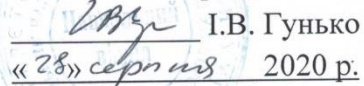 І.В. Гунько
«28» серпня 2020 р.